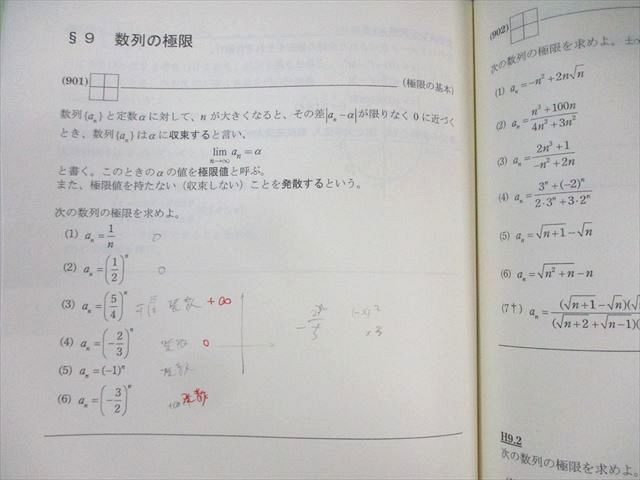 §9 数列の極限
(901) (極限の基本)
数列{aₙ}と定数αに対して、nが大きくなると、その差|aₙ−α|が限りなく0に近づく
とき、数列{aₙ}はαに収束すると言い、
lim_{n→∞} aₙ=α
と書く。このときのαの値を極限値と呼ぶ。
また、極限値を持たない（収束しない）ことを発散するという。
次の数列の極限を求めよ。
(1) aₙ=1/n 0
(2) aₙ=(1/2)ⁿ 0
(3) aₙ=(5/4)ⁿ 発散 +∞
(4) aₙ=(−2/3)ⁿ 発散 0
(5) aₙ=(−1)ⁿ 発散
(6) aₙ=(−3/2)ⁿ +∞ 発散
(902)
次の数列の極限を求めよ。
(1) aₙ=−n²+2n√n
(2) aₙ=(n³+100n)/(4n³+3n²)
(3) aₙ=(2n³+1)/(−n²+2n)
(4) aₙ=(3ⁿ+(−2)ⁿ)/(2·3ⁿ+3·2ⁿ)
(5) aₙ=√(n+1)−√n
(6) aₙ=√(n²+n)−n
(7↑) aₙ=(√(n+1)−√n)(√ / (√(n+2)+√(n−1))(
H9.2
次の数列の極限を求めよ。